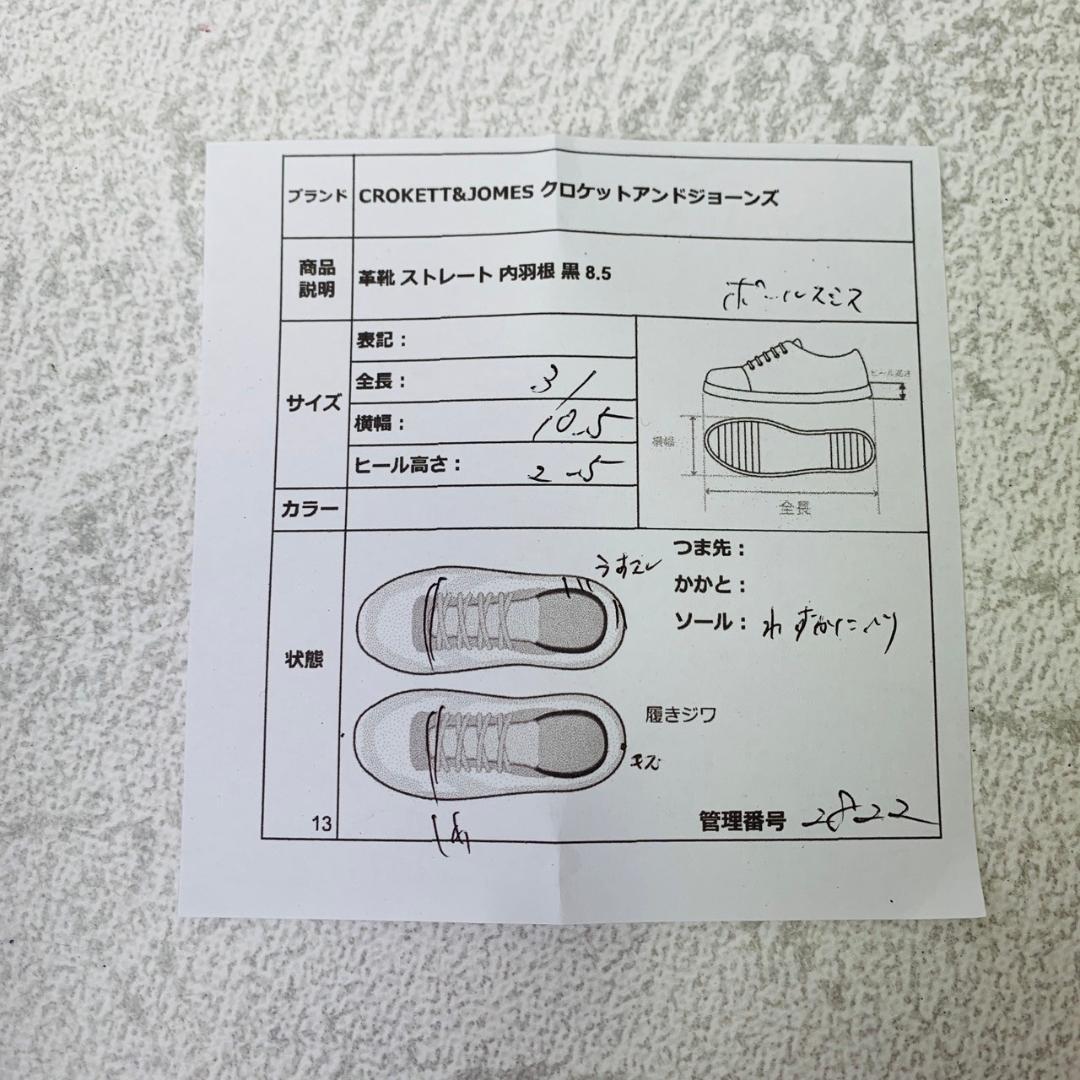 ブランド CROKETT&JOMES クロケットアンドジョーンズ
商品説明 革靴 ストレート 内羽根 黒 8.5
ポールスミス
サイズ
表記：
全長： 31
横幅： 10.5
ヒール高さ： 2.5
ヒール高さ
横幅
全長
カラー
状態
つま先：
かかと：
ソール： わずかにヘリ
うすスレ
履きジワ
キズ
13
管理番号 2822